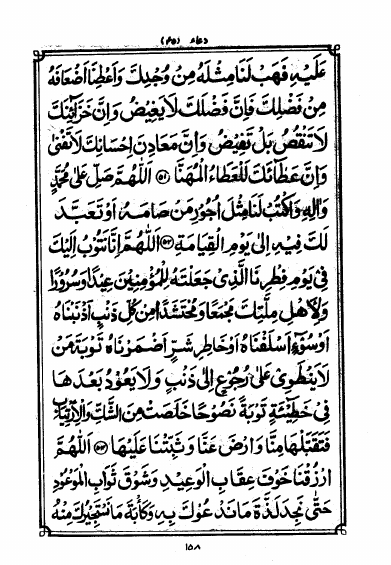 دعاء (۴۵)
عَلَيْهِ فَهَبْ لَنَا مِثْلَهُ مِنْ وُجْدِكَ وَاَعْطِنَا اَضْعَافَهُ
مِنْ فَضْلِكَ فَاِنَّ فَضْلَكَ لَا يَغِيْضُ وَاِنَّ خَزَآئِنَكَ
لَا تَنْقُصُ بَلْ تَفِيْضُ وَاِنَّ مَعَادِنَ اِحْسَانِكَ لَا تَفْنٰى
وَاِنَّ عَطَآئَكَ لَلْعَطَاءُ الْمُهَنَّا ﴿۵۱﴾ اَللّٰهُمَّ صَلِّ عَلٰى مُحَمَّدٍ
وَاٰلِهٖ وَاكْتُبْ لَنَا مِثْلَ اُجُوْرِ مَنْ صَامَهُ اَوْ تَعَبَّدَ
لَكَ فِيْهِ اِلٰى يَوْمِ الْقِيَامَةِ ﴿۵۲﴾ اَللّٰهُمَّ اِنَّا نَتُوْبُ اِلَيْكَ
فِيْ يَوْمِ فِطْرِنَا الَّذِيْ جَعَلْتَهُ لِلْمُؤْمِنِيْنَ عِيْدًا وَسُرُوْرًا
وَلِاَهْلِ مِلَّتِكَ مَجْمَعًا وَمُحْتَشَدًا مِنْ كُلِّ ذَنْبٍ اَذْنَبْنَاهُ
اَوْ سُوْٓءٍ اَسْلَفْنَاهُ اَوْ خَاطِرِ شَرٍّ اَضْمَرْنَاهُ تَوْبَةَ مَنْ
لَا يَنْطَوِيْ عَلٰى رُجُوْعٍ اِلٰى ذَنْبٍ وَلَا يَعُوْدُ بَعْدَهَا
فِيْ خَطِيْٓئَةٍ تَوْبَةً نَصُوْحًا خَلَصَتْ مِنَ الشَّكِّ وَالْاِرْتِيَابِ
فَتَقَبَّلْهَا مِنَّا وَارْضَ عَنَّا وَثَبِّتْنَا عَلَيْهَا ﴿۵۳﴾ اَللّٰهُمَّ
ارْزُقْنَا خَوْفَ عِقَابِ الْوَعِيْدِ وَشَوْقَ ثَوَابِ الْمَوْعُوْدِ
حَتّٰى نَجِدَ لَذَّةَ مَا نَدْعُوْكَ بِهٖ وَكَاٰبَةَ مَا نَسْتَجِيْرُكَ مِنْهُ
۱۵۸